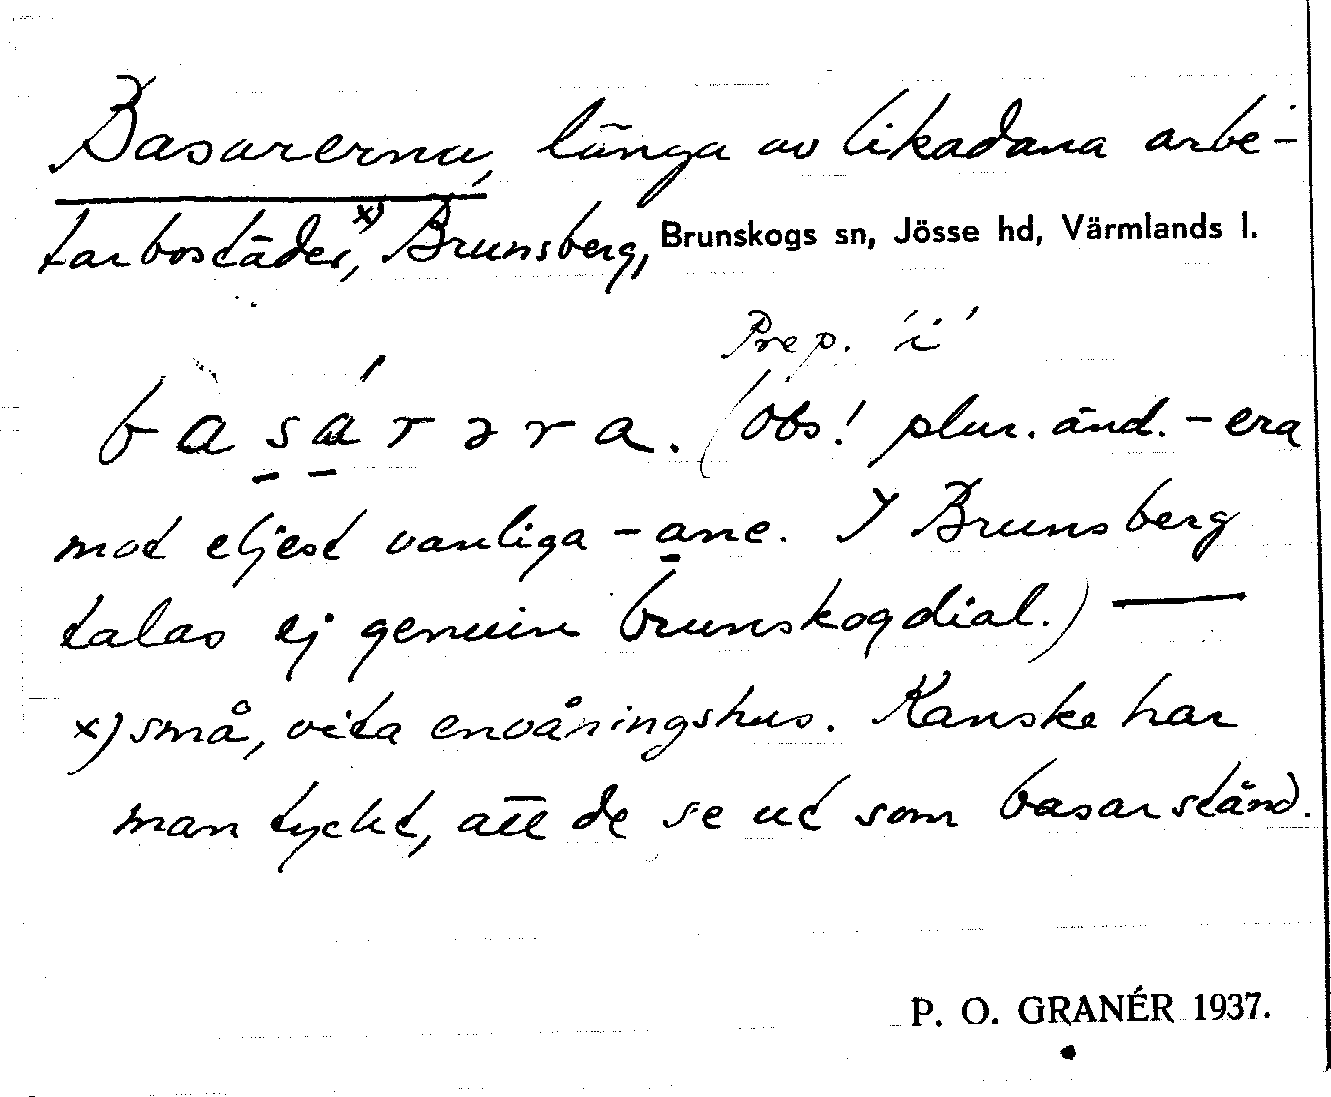 Basarerna, länga av likadana arbe-
tarbostäder,x) Brunsberg, Brunskogs sn, Jösse hd, Värmlands l.
Prep. 'i'
basárəra. (Obs! plur. änd. -era
mot eljest vanliga -ane. I Brunsberg
talas ej genuin brunskogdial.) —
x) små, vita envåningshus. Kanske har
man tyckt, att de se ut som basarstånd.
P. O. GRANÉR 1937.